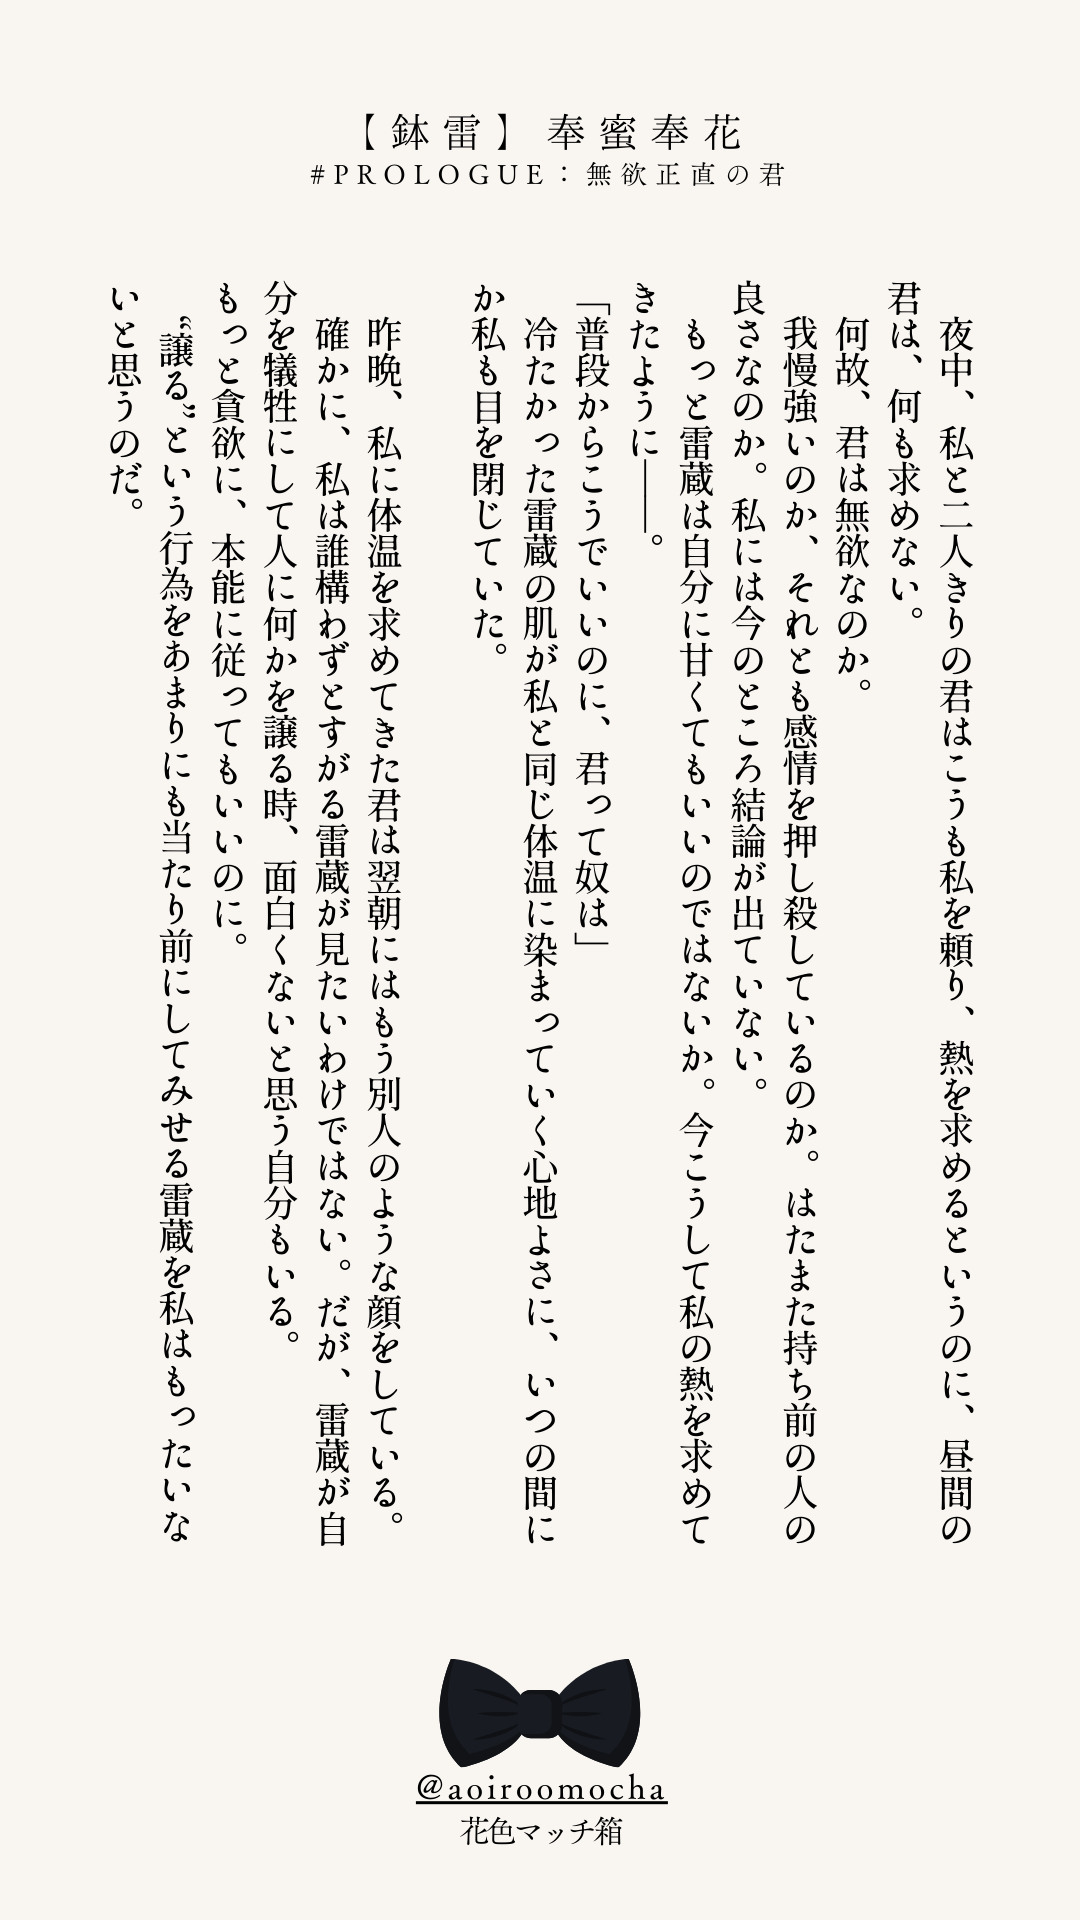 【鉢雷】奉蜜奉花
#PROLOGUE：無欲正直の君
夜中、私と二人きりの君はこうも私を頼り、熱を求めるというのに、昼間の
君は、何も求めない。
何故、君は無欲なのか。
我慢強いのか、それとも感情を押し殺しているのか。はたまた持ち前の人の
良さなのか。私には今のところ結論が出ていない。
もっと雷蔵は自分に甘くてもいいのではないか。今こうして私の熱を求めて
きたように――。
「普段からこうでいいのに、君って奴は」
冷たかった雷蔵の肌が私と同じ体温に染まっていく心地よさに、いつの間に
か私も目を閉じていた。
昨晩、私に体温を求めてきた君は翌朝にはもう別人のような顔をしている。
確かに、私は誰構わずとすがる雷蔵が見たいわけではない。だが、雷蔵が自
分を犠牲にして人に何かを譲る時、面白くないと思う自分もいる。
もっと貪欲に、本能に従ってもいいのに。
“譲る”という行為をあまりにも当たり前にしてみせる雷蔵を私はもったいな
いと思うのだ。
@aoiroomocha
花色マッチ箱